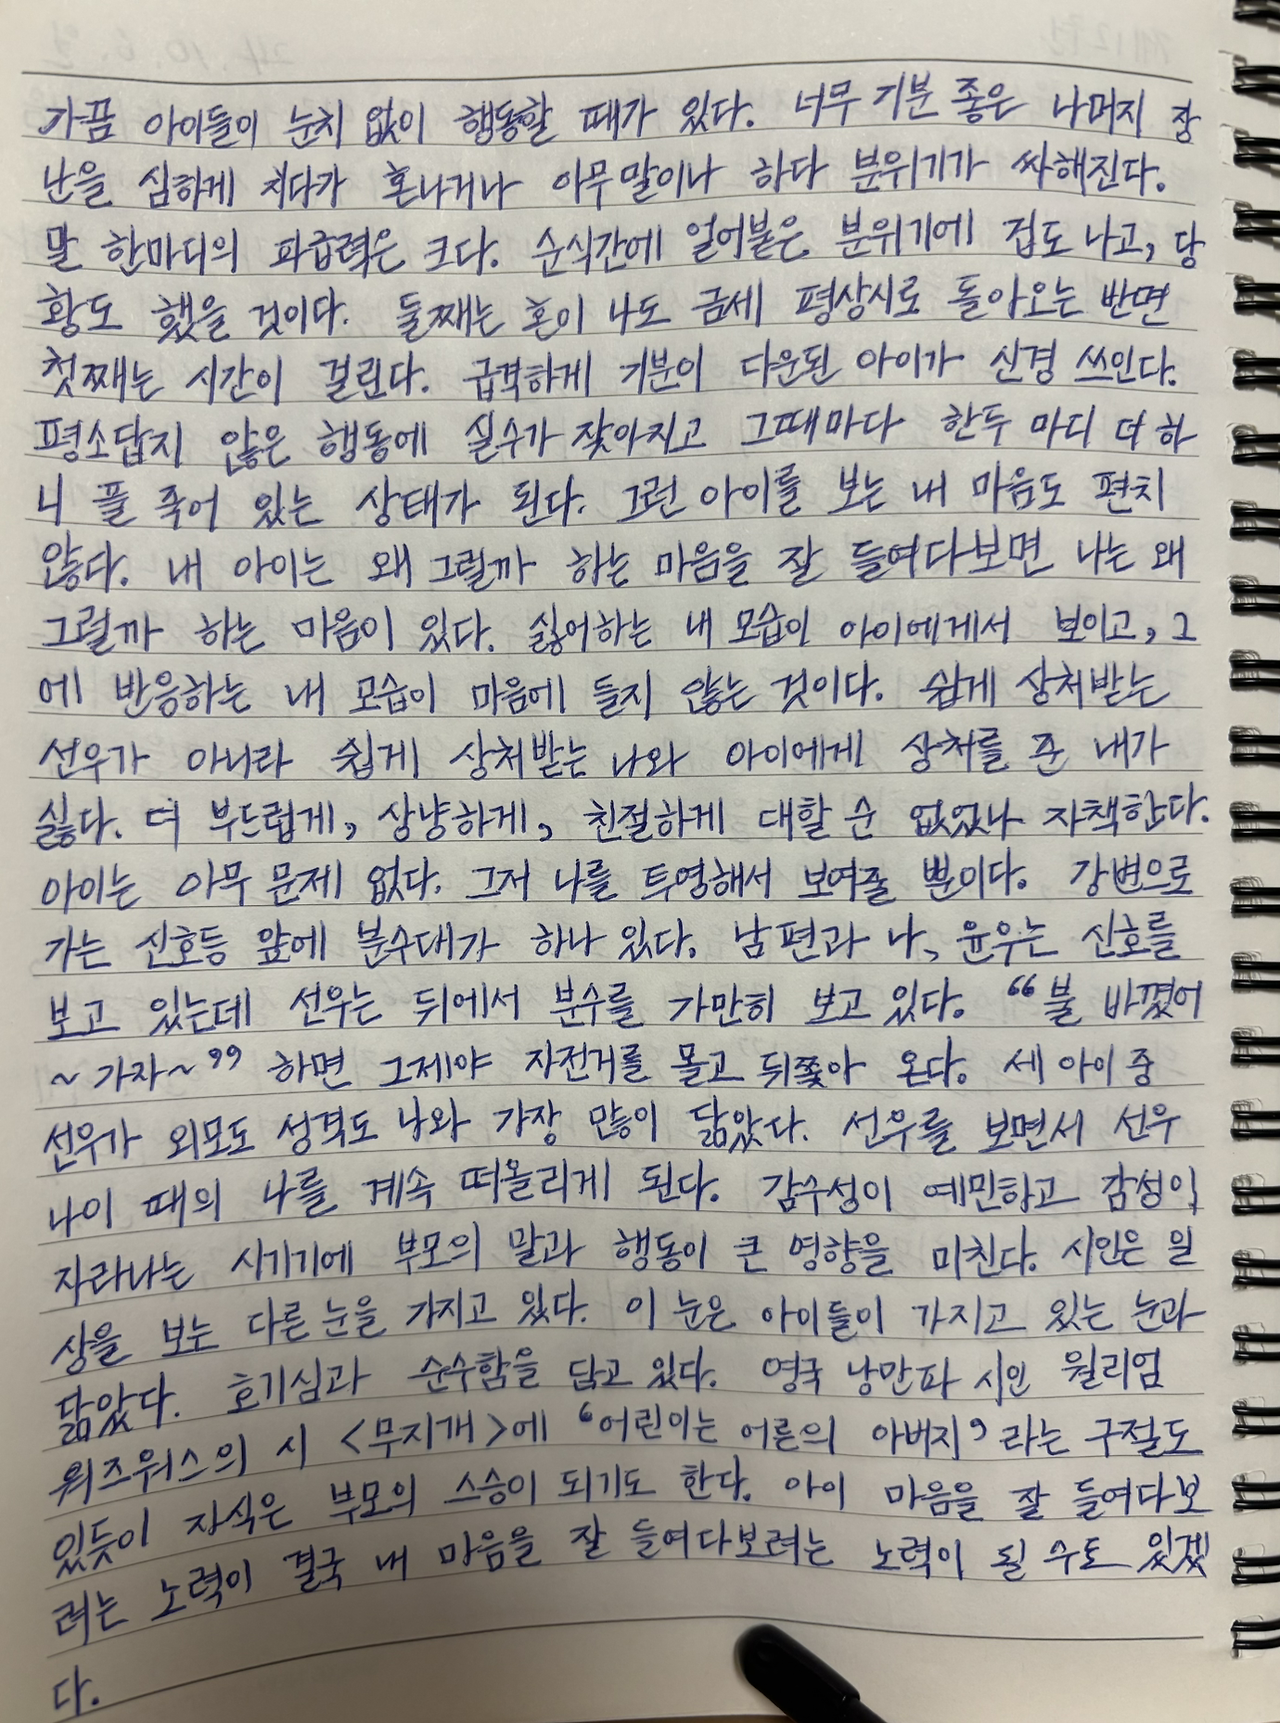 가끔 아이들이 눈치 없이 행동할 때가 있다. 너무 기분 좋은 나머지 장
난을 심하게 치다가 혼나거나 아무말이나 하다 분위기가 싸해진다.
말 한마디의 파급력은 크다. 순식간에 얼어붙은 분위기에 겁도 나고, 당
황도 했을 것이다. 둘째는 혼이 나도 금세 평상시로 돌아오는 반면
첫째는 시간이 걸린다. 급격하게 기분이 다운된 아이가 신경 쓰인다.
평소답지 않은 행동에 실수가 잦아지고 그때마다 한두 마디 더 하
니 풀 죽어 있는 상태가 된다. 그런 아이를 보는 내 마음도 편치
않다. 내 아이는 왜 그럴까 하는 마음을 잘 들여다보면 나는 왜
그럴까 하는 마음이 있다. 싫어하는 내 모습이 아이에게서 보이고, 그
에 반응하는 내 모습이 마음에 들지 않는 것이다. 쉽게 상처받는
선우가 아니라 쉽게 상처받는 나와 아이에게 상처를 준 내가
싫다. 더 부드럽게, 상냥하게, 친절하게 대할 순 없었나 자책한다.
아이는 아무 문제 없다. 그저 나를 투영해서 보여줄 뿐이다. 강변으로
가는 신호등 앞에 분수대가 하나 있다. 남편과 나, 윤우는 신호를
보고 있는데 선우는 뒤에서 분수를 가만히 보고 있다. “불 바꼈어
~ 가자~” 하면 그제야 자전거를 몰고 뒤쫓아 온다. 세 아이 중
선우가 외모도 성격도 나와 가장 많이 닮았다. 선우를 보면서 선우
나이 때의 나를 계속 떠올리게 된다. 감수성이 예민하고 감성이
자라나는 시기기에 부모의 말과 행동이 큰 영향을 미친다. 시인은 일
상을 보는 다른 눈을 가지고 있다. 이 눈은 아이들이 가지고 있는 눈과
닮았다. 호기심과 순수함을 담고 있다. 영국 낭만파 시인 윌리엄
워즈워스의 시 <무지개>에 ‘어린이는 어른의 아버지’라는 구절도
있듯이 자식은 부모의 스승이 되기도 한다. 아이 마음을 잘 들여다보
려는 노력이 결국 내 마음을 잘 들여다보려는 노력이 될 수도 있겠
다.